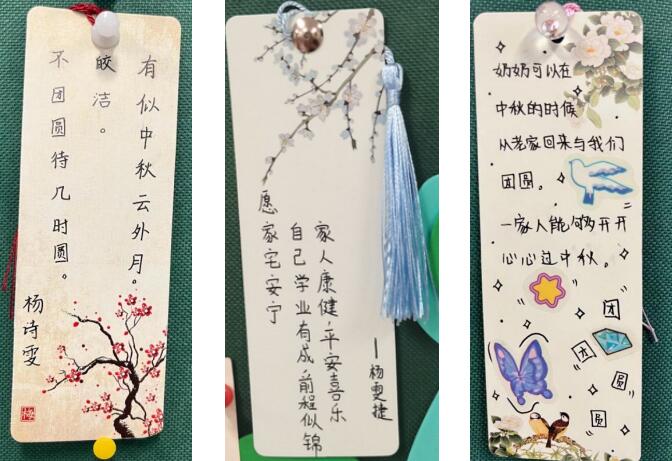 有似中秋云外月。
皎洁。
不团圆待几时圆。
杨诗雯
愿家宅安宁
自己学业有成前程似锦
家人康健,平安喜乐
—杨雯捷
奶奶可以在
中秋的时候
从老家回来与我们
团圆。
一家人能够开开
心心过中秋。
团
团
圆
圆